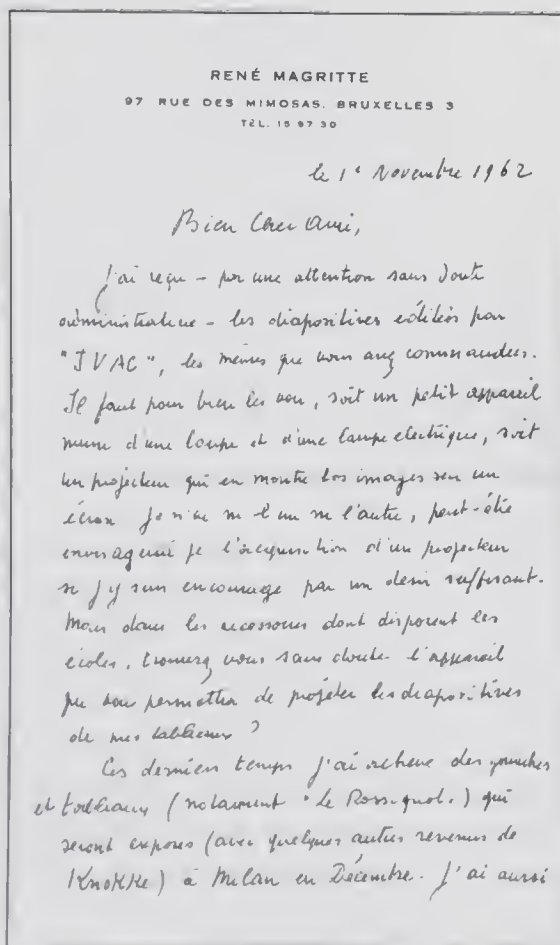 RENÉ MAGRITTE
97 RUE DES MIMOSAS. BRUXELLES 3
TÉL. 15 97 30
le 1r Novembre 1962
Bien Cher Ami,
J'ai reçu – par une attention sans doute
administrative – les diapositives éditées par
"IVAC", les mêmes que vous avez commandées.
Il faut pour bien les voir, soit un petit appareil
muni d'une loupe et d'une lampe électrique, soit
un projecteur qui en montre les images sur un
écran Je n'ai ni l'un ni l'autre, peut-être
envisagerai je l'acquisition d'un projecteur
si j'y suis encouragé par un désir suffisant.
Mais dans les accessoires dont disposent les
écoles, trouverez vous sans doute l'appareil
qui vous permettra de projeter les diapositives
de mes tableaux ?
Ces derniers temps j'ai achevé des gouaches
et tableaux (notamment "le Rossignol") qui
seront exposés (avec quelques autres revenus de
Knokke) à Milan en Décembre. J'ai aussi